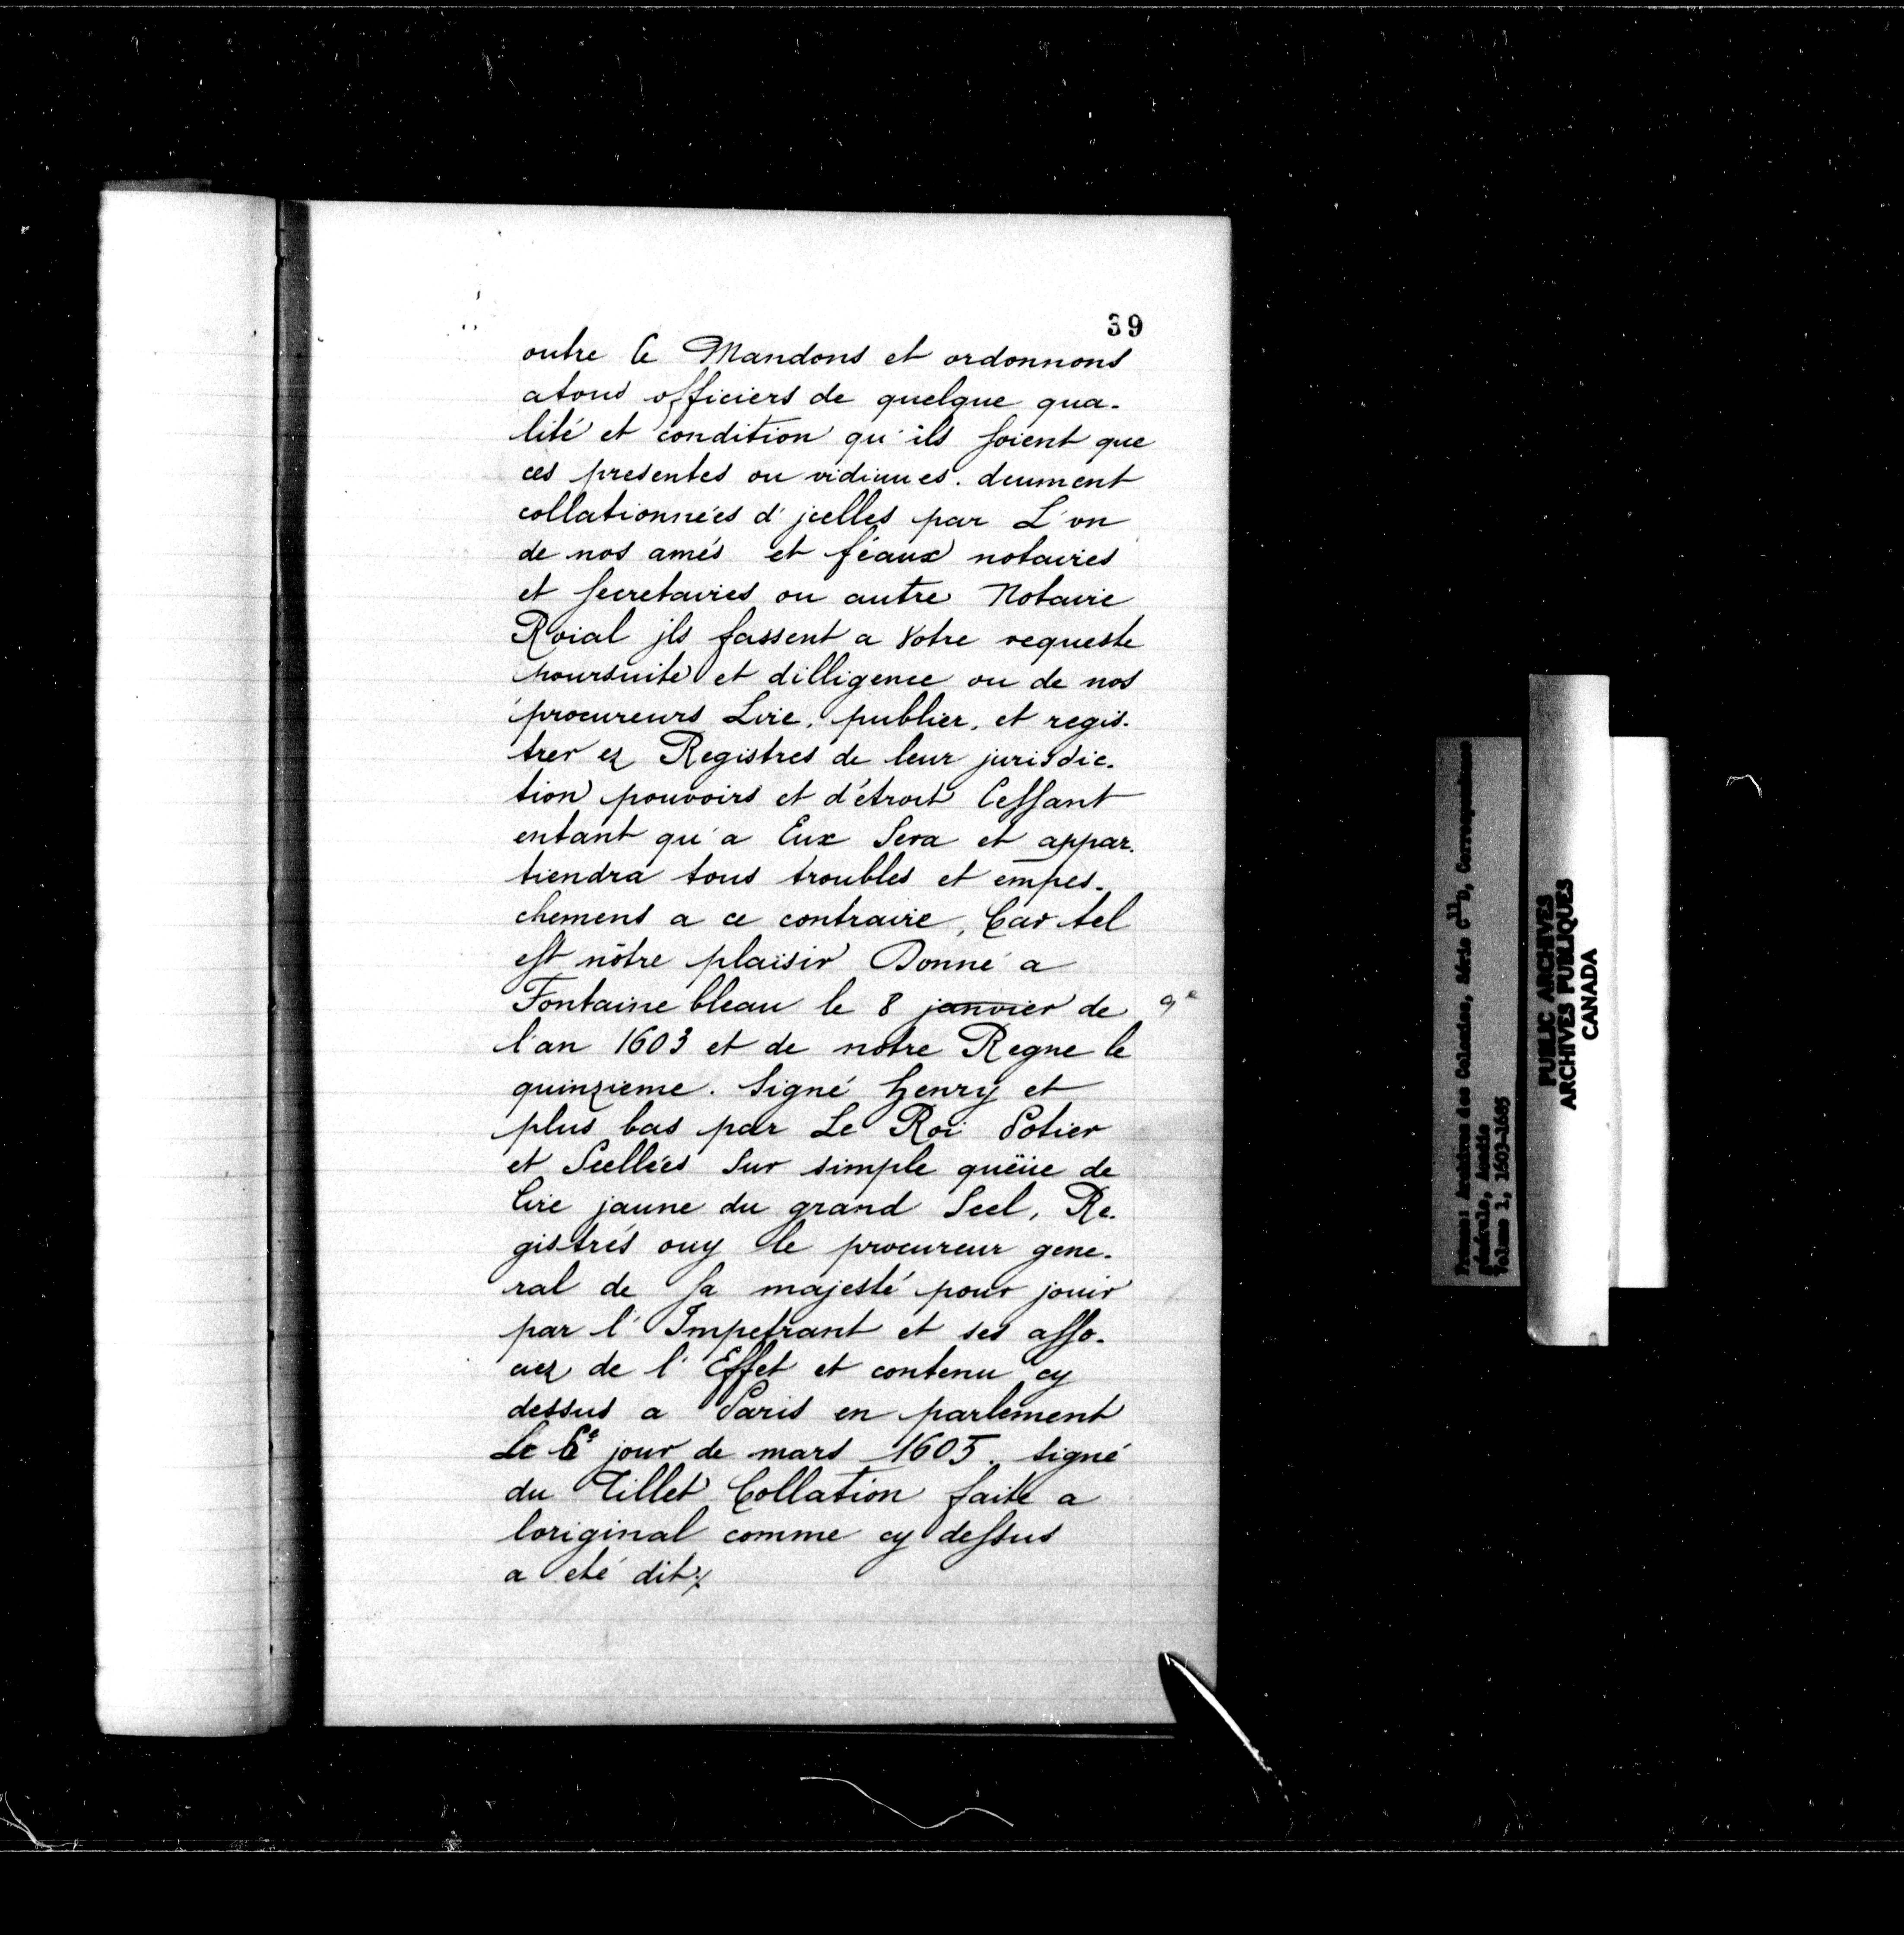 39
outre Ce Mandons et ordonnons
atous officiers de quelque qua-
lité et condition qu'ils soient que
ces presentes ou vidimues. deument
collationnées d'jcelles par L'un
de nos amés et féaux notaires
et secretaires ou autre Notaire
Roial jls fassent a Votre requeste
poursuite et dilligence ou de nos
procureurs Lire, publier, et regis-
trer ez Registres de leur jurisdic-
tion pouvoirs et d'étroit Cessant
entant qu'a Eux Sera et appar-
tiendra tous troubles et empes-
chemens a ce contraire, Car tel
est nôtre plaisir Donné a
Fontaine bleau le 8 janvier de 9e
l'an 1603 et de notre Regne le
quinzieme. Signé henry et
plus bas par Le Roi Potier
et Scellées Sur simple queüe de
Cire jaune du grand Scel, Re-
gistrés ouy le procureur gene-
ral de sa majesté pour jouir
par l'Impetrant et ses asso-
ciez de l'Effet et contenu cy
dessus a Paris en parlement
Le 6e jour de mars 1605. signé
du Tillet Collation faite a
loriginal comme cy dessus
a eté dit
PUBLIC ARCHIVES
ARCHIVES PUBLIQUES
CANADA
France: Archives des Colonies, Série C11D, Correspondance
générale, Acadie
Volume 1, 1603-1685